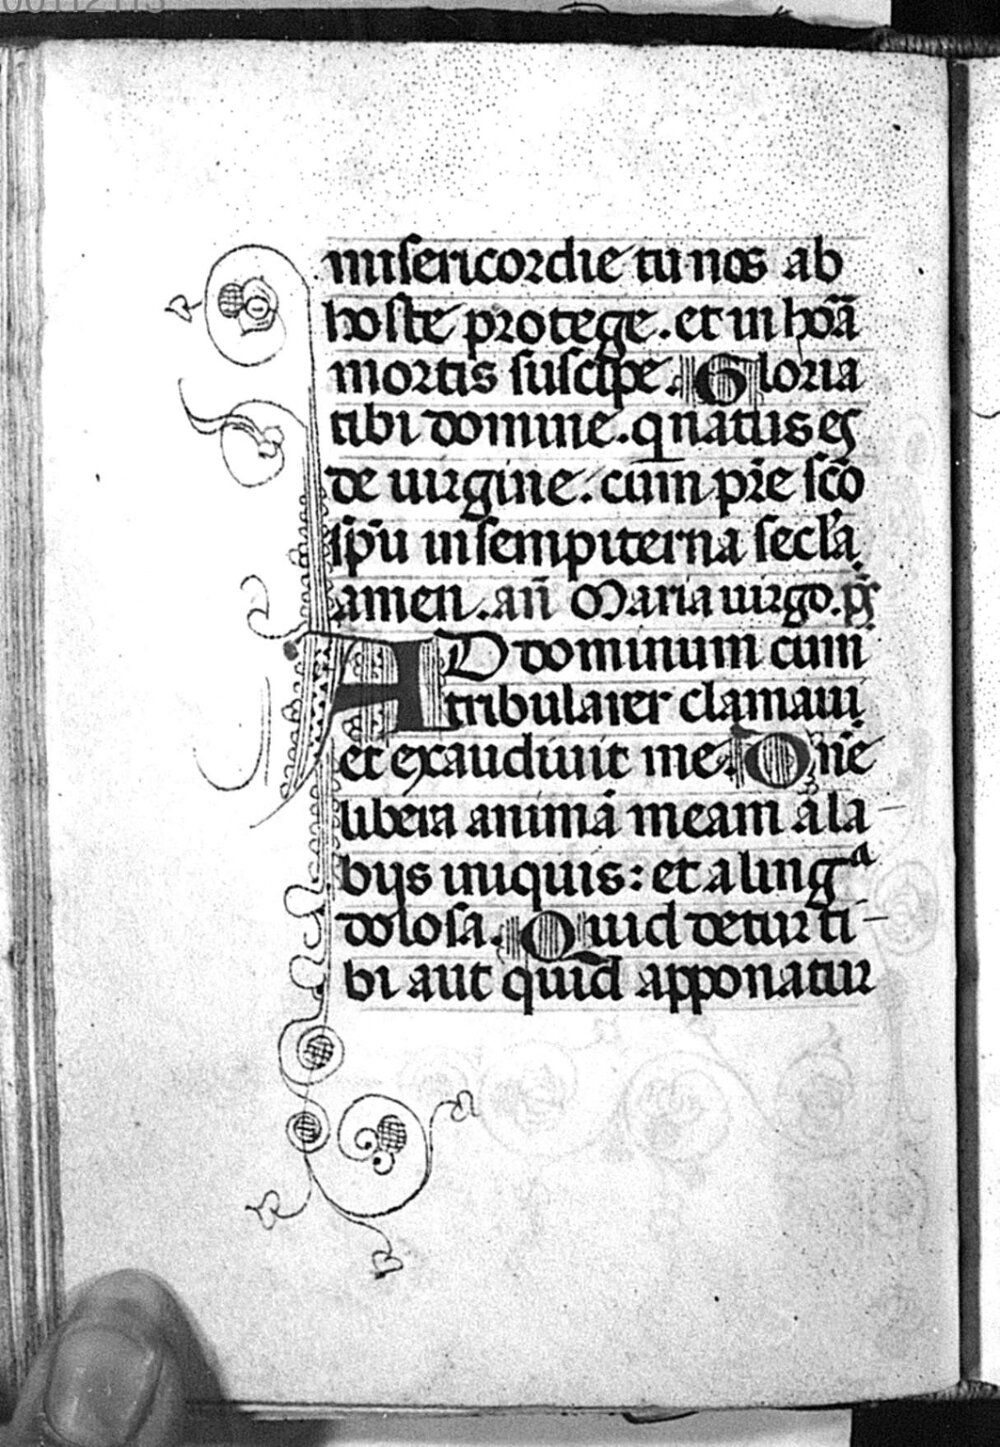 00112113
misericordie tu nos ab
hoste protege. et in hora̅
mortis suscipe. Gloria
tibi domine. q̅ natus es
de uirgine. cum pr̅e sc̅o
sp̅u in sempiterna secl̅a.
amen. an̅ Maria uirgo. p̅s̅
AD dominum cum
tribularer clamaui
et exaudiuit me. Dn̅e
libera anima̅ meam a la
biis iniquis: et a lingᵃ
dolosa. Quid detur ti
bi aut quid apponatur